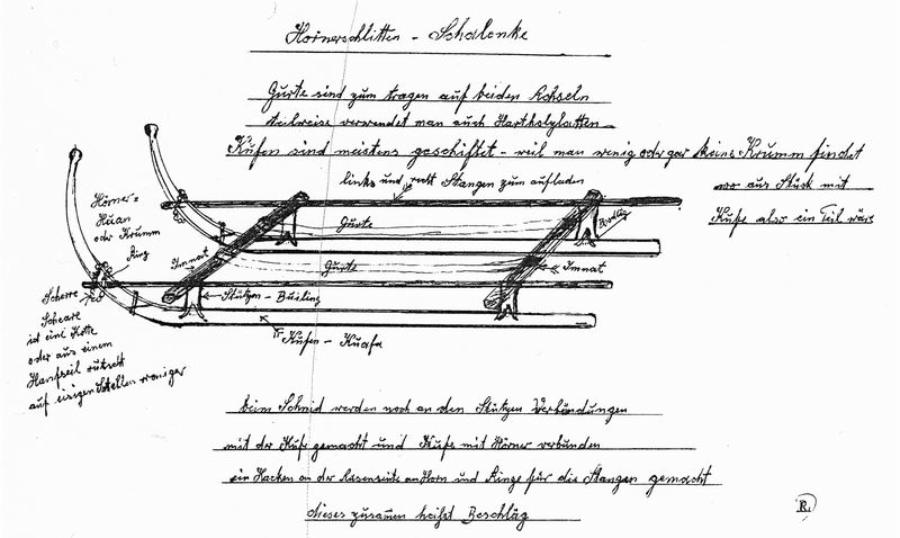 Hornerschlitten - Schalenke
Gurte sind zum tragen auf beiden Achseln
teilweise verwendet man auch Hartholzlatten
Kufen sind meistens geschiftet - weil man wenig oder gar keine Krumm findet
wo aus Stück mit
Kufe also ein Teil wäre
links und recht Stangen zum aufladen
Hörner =
Huan
oder Krumm
Ring
Gurte
Immat
Gurte
Immat
Stützen - Builing
Kufen - Kuafa
Scherre
Scheare
ist eine Kette
oder aus einem
Hanfseil rutscht
auf eisigen Stellen weniger
beim Schmid werden noch an den Stützen Verbindungen
mit der Kufe gemacht und Kufe mit Hörner verbunden
ein Hacken an der Aussenseite an Horn und Ringe für die Stangen gemacht
dieses zusamen heißt Beschläg
R.